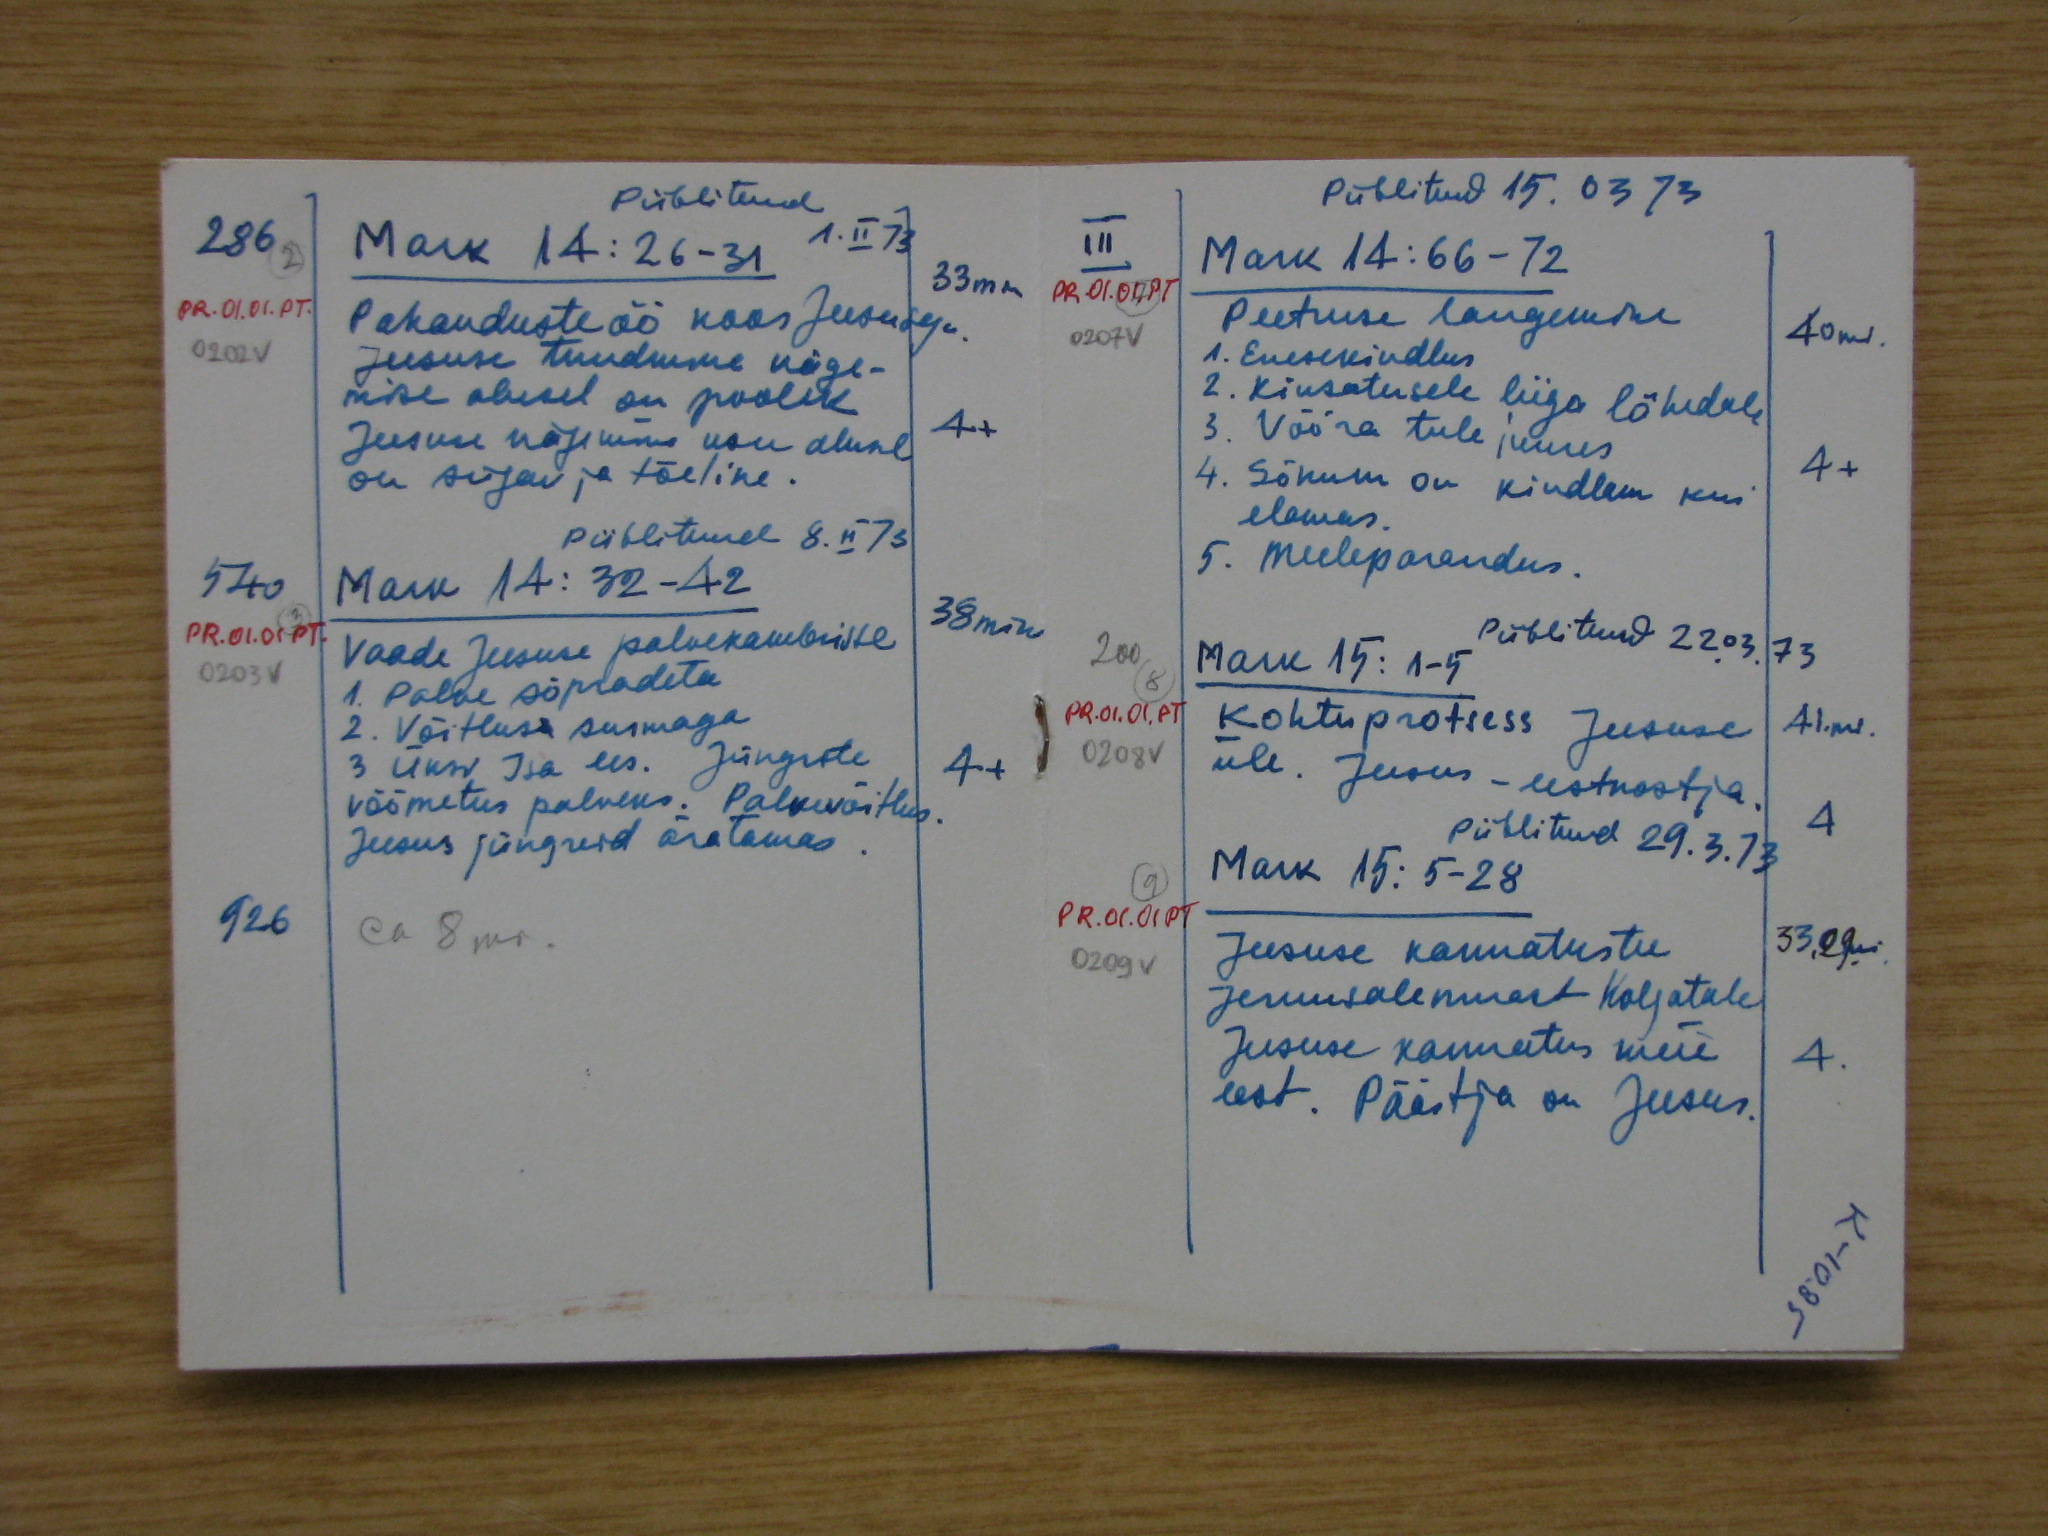 Piiblitund
286 2 Mark 14:26-31 1.II 73
33 min
PR.01.01.PT.
0202V
Pahanduste öö koos Jeesusega.
Jeesuse tundmine näge-
mise alusel on poolik
Jeesuse nägemine usu alusel 4+
on sügav ja tõeline.
Piiblitund 8.II 73
540 Mark 14:32-42
3 38 min
PR.01.01.PT.
0203V
Vaade Jeesuse palvekambrisse
1. Palve sõpradeta
2. Võitlus surmaga
3 Üksi Isa ees. Jüngrite 4+
võõmetus palveks. Palvevõitlus.
Jeesus jüngreid äratamas.
926 ca 8 min.
Piiblitund 15.03 73
III Mark 14:66-72
PR.01.01.PT
0207V
Peetruse langemine 40 min.
1. Enesekindlus
2. Kiusatusele liiga lähedale
3. Võõra tule juures
4. Sõnum on kindlam kui 4+
elamus.
5. Meeleparandus.
200 8 Mark 15:1-5 Piiblitund 22.03.73
PR.01.01.PT
0208V
Kohtuprotsess Jeesuse 41 min.
üle. Jeesus - eestkostja.
4
Piiblitund 29.3.73
9 Mark 15:5-28
PR.01.01PT
0209V
Jeesuse kannatustee 33,09 min.
Jeruusalemmast Kolgatale
Jeesuse kannatus meie 4.
eest. Päästja on Jeesus.
K-10.85